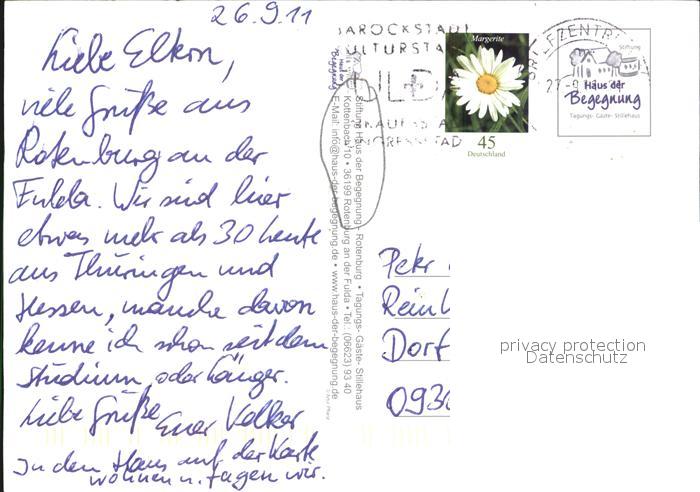 26.9.11
Liebe Eltern,
viele Grüße aus
Rotenburg an der
Fulda. Wir sind hier
etwas mehr als 30 Leute
aus Thüringen und
Hessen, manche davon
kenne ich schon seit dem
Studium, oder länger.
Liebe Grüße
Euer Volker
In dem Haus auf der Karte
wohnen u. tagen wir.
Haus der
Begegnung
Stiftung Haus der Begegnung - Rotenburg • Tagungs- Gäste- Stillehaus
Kottenbach 10 • 36199 Rotenburg an der Fulda • Tel.: (06623) 93 40
E-Mail: info@haus-der-begegnung.de • www.haus-der-begegnung.de
BAROCKSTADT
KULTURSTA
BRIEFZENTR
Margerite
45
Deutschland
Stiftung
Haus der
Begegnung
Tagungs- Gäste- Stillehaus
Peter
Rein
Dorf
093
privacy protection
Datenschutz